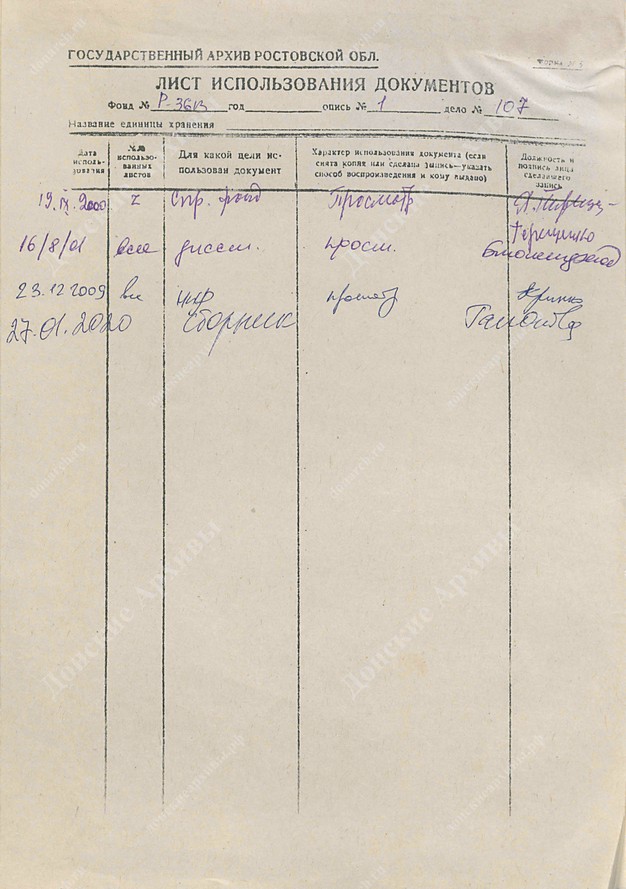 ГОСУДАРСТВЕННЫЙ АРХИВ РОСТОВСКОЙ ОБЛ.
Форма № 5
ЛИСТ ИСПОЛЬЗОВАНИЯ ДОКУМЕНТОВ
Фонд № Р-3613 год опись № 1 дело № 107
Название единицы хранения
Дата исполь-зования
№№ использо-ванных листов
Для какой цели ис-пользован документ
Характер использования документа (если снята копия или сделана запись—указать способ воспроизведения и кому выдано)
Должность и подпись лица сделавшего запись
19.IX.2000 Спр. фонд Просмотр
16/8/01 все диссер. просм.
23.12.2009 просмотр
27.01.2020 Сборник
Донские Архивы